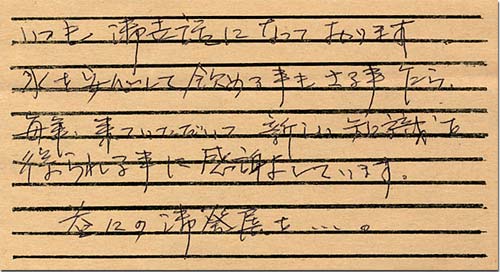 いつも御世話になっております
水を安心して飲める事もさる事乍ら、
毎年、来ていただいて 新しい知識を
得られる事に感謝しています。
益々の御発展を…。